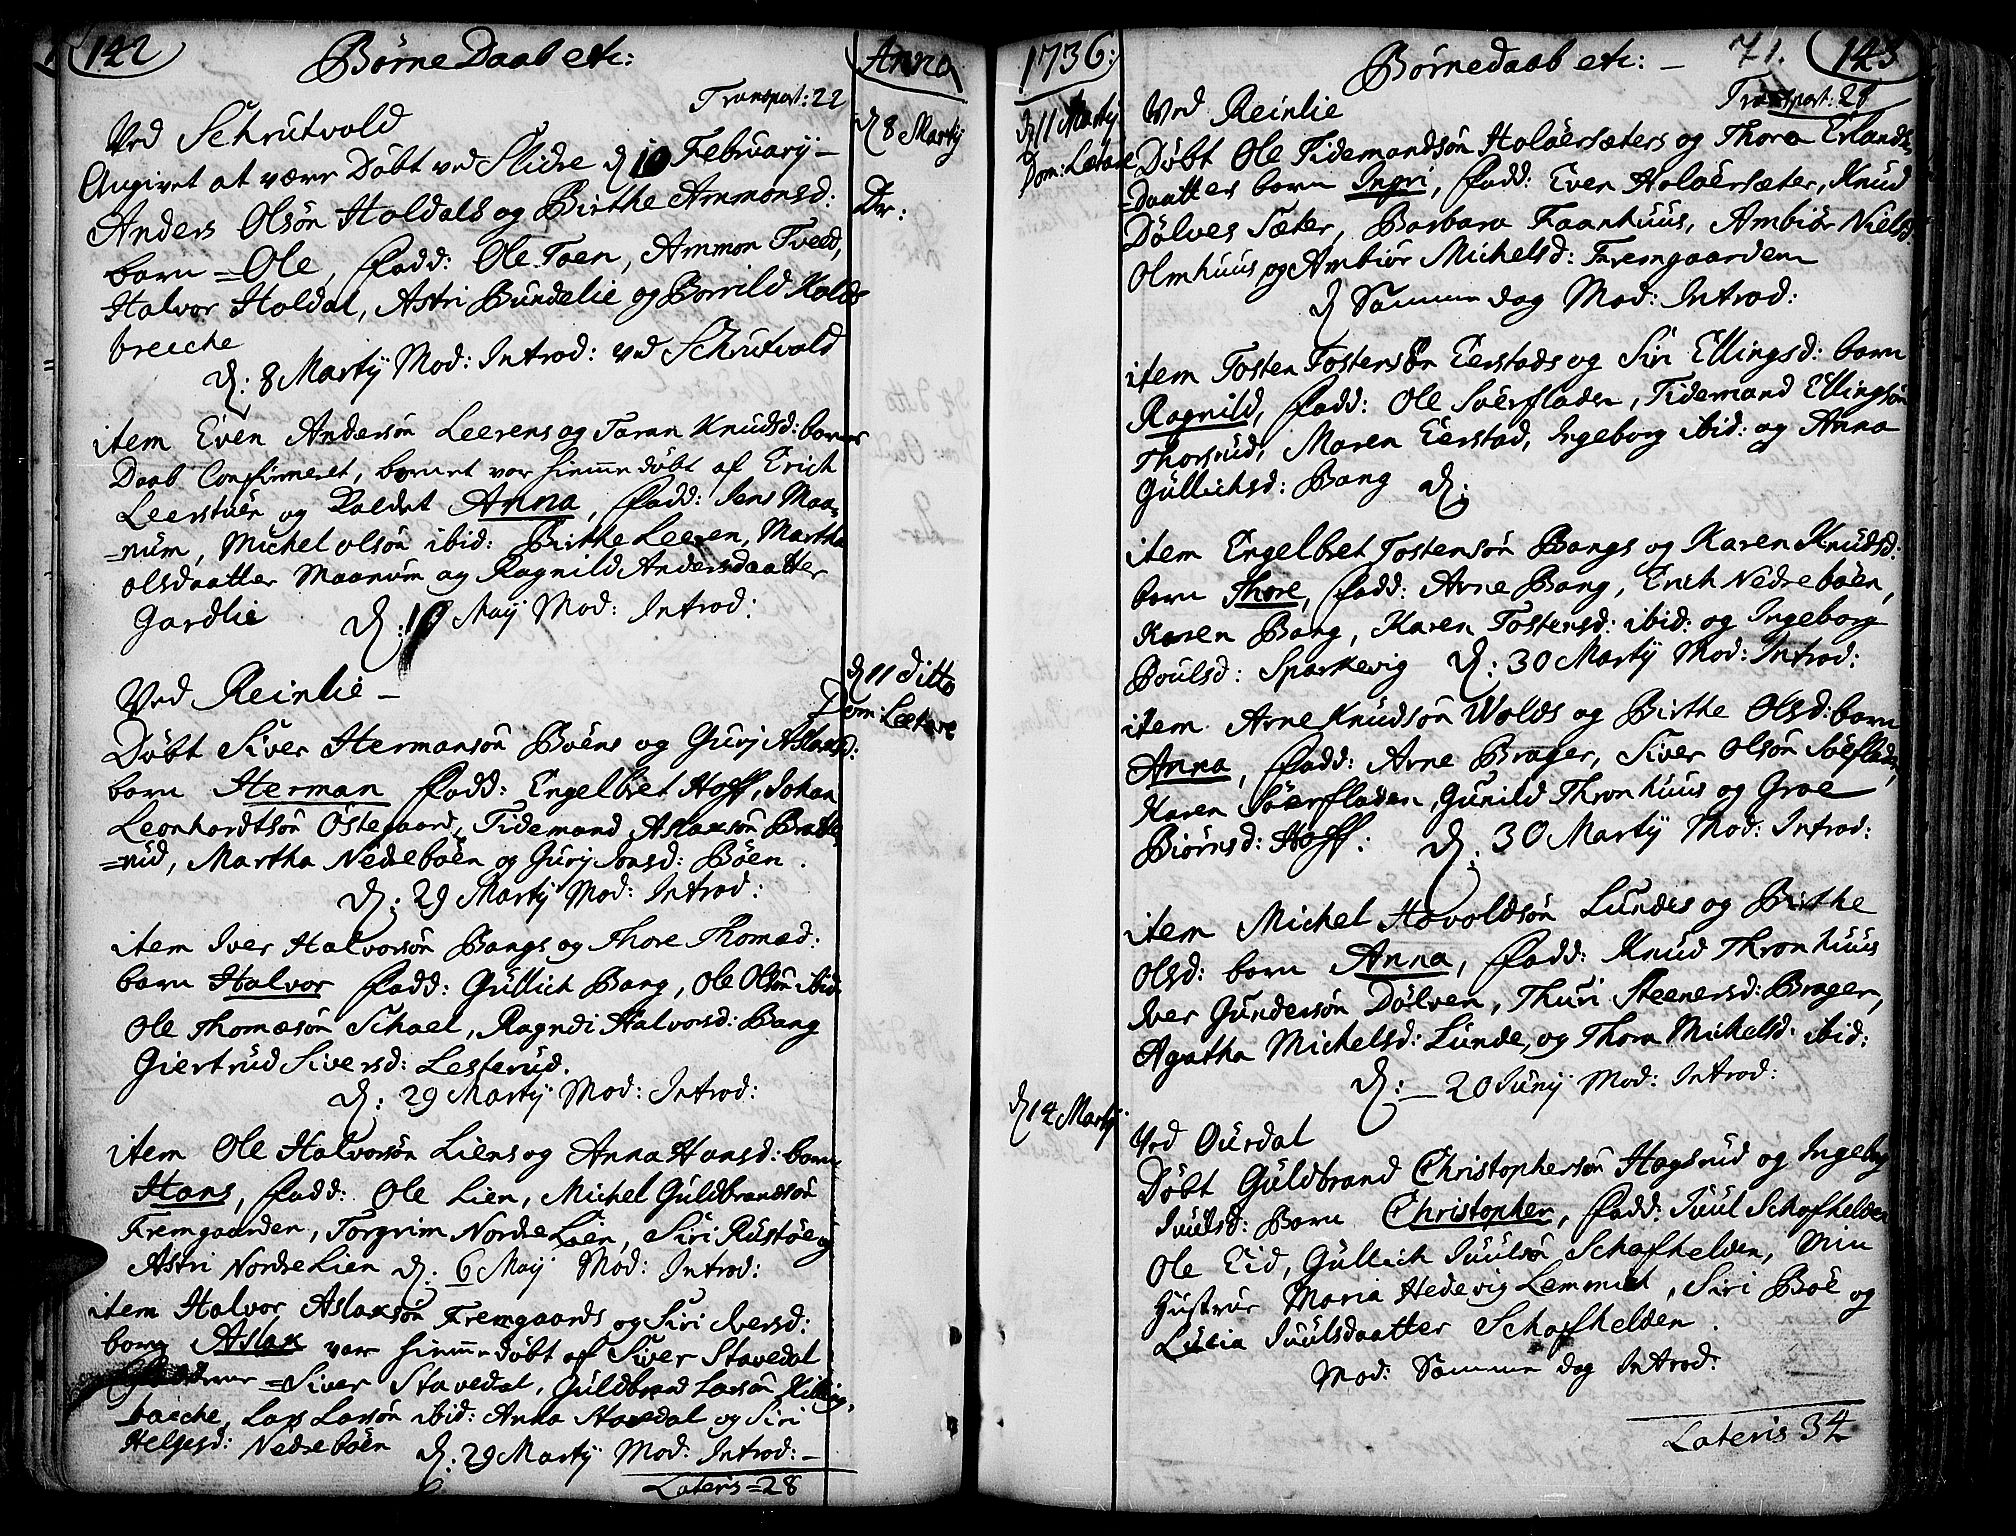 142 Børne Daab etc: Anno
Transport: 22
Ved Schrutvold
d 8 Martij
Angivet at være Døbt ved Slidre d 10 February
Anders Olsøn Holdals og Birthe Ammonsd:
barn Ole, fadd: Ole Toen, Ammon Tveed,
Halvor Holdal, Astri Bundelie og Borrild Kolds
breche
d: 8 Martij Mod: Introd: ved Schrutvold
item Even Andersøn Leerens og Taran Knudsd: barns
Daab Confirmeret, barnet var hiemme døbt af Erich
Leerstuen og Kaldet Anna, fadd: Jens Maa-
=num, Michel olsøn ibid: Birthe Leeren, Martha
olsdaatter Maanum og Ragnild Andersdaatter
Gardlie d: 10 Maij Mod: Introd:
d 11 ditto
Dom: Lætare
Ved Reinlie
Døbt Siver Hermansøn Bøens og Gurj Aslaksd:
barn Herman fadd: Engelbret Hoff, Johan
Leonhardtsøn Østegaard, Tidemand Aslaksøn Bratte
=rud, Martha Nedrebøen og Gurj Jonsd: Bøen.
d: 29 Martij Mod: Introd:
item Iver Halvorsøn Bangs og Thore Thomæd:
barn Halvor fadd: Gullich Bang, Ole Olsøn ibid
Ole Thomæsøn Schael, Ragndi Halvorsd: Bang
Giertrud Siversd: Lesterud.
d: 29 Martij Mod: Introd:
item Ole Halvorsøn Liens og Anna Hansd: barn
Hans, fadd: Ole Lien, Michel Guldbrandsøn
Fremgaarden, Torgrim Nordre Lien, Siri Rustøe og
Astri Nordre Lien d: 6 Maij Mod: Introd:
item Halvor Aslaksøn Fremgaards og Siri Iversd:
barn Aslak var hiemme døbt af Siver Stavedal
Siver Stavedal, Guldbrand Larsøn Killing-
bæche, Lars Larsøn ibid: Anna Stavedal og Siri
Helgesd: Nedrebøen d: 29 Martij Mod: Introd:
Lateris = 28
1736: Børnedaab etc: 71. 143
Transport: 28
d 11 Martij
Dom: Lætare
Ved Reinlie
Døbt Ole Tidemandsøn Holdersæters og Thora Erlands-
=daatter barn Ingri, fadd: Even Holdersæter, Knud
Dølves Sæter, Barbara Faanhuus, Ambiør Nielsd:
Olmhuus og Ambiør Michelsd: Fremgaarden
d Samme dag Mod: Introd:
item Tosten Tostensøn Eerstads og Siri Ellingsd: barn
Ragnild, fadd: Ole Søerfladen, Tidemand Ellingsøn
Thorsrud, Maren Eerstad, Ingeborg ibid: og Anna
Gullichsd: Bang d:
item Engelbret Tostensøn Bangs og Karen Knudsd:
barn Thore, fadd: Arne Bang, Erich Nedrebøen,
Karen Bang, Karen Tostensd: ibid: og Ingeborg
Poulsd: Sparkevig d: 30 Martij Mod: Introd:
item Arne Knudsøn Wolds og Birthe Olsd: barn
Anna, fadd: Arne Brager, Siver Olsøn Søerfladen,
Karen Søerfladen, Gunild Thronhuus og Groe
Biørnsd: Hoff: d: 30 Martij Mod: Introd:
item Michel Havoldsøn Lundes og Birthe
Olsd: barn Anna, fadd: Knud Thronhuus
Iver Gundersøn Dølven, Thuri Steenersd: Brager,
Agatha Michelsd: Lunde, og Thora Michelsd: ibid:
d: 20 Junij Mod: Introd:
d 14 Martij
Ved Ourdal
Døbt Guldbrand Christophersøn Hagsrud og Ingeborg
Juulsd: Barn Christopher, fadd: Juul Schafhelden
Ole Eid, Gullich Juulsøn Schafhelden, Min
Hustrue Maria Hedevig Lemmich, Siri Bøe og
Lucia Juulsdaatter Schafhelden.
Mod: Samme dag Introd:
Lateris 34